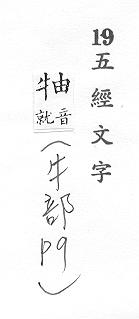 19五經文字
牰
音就
(牛部p9)